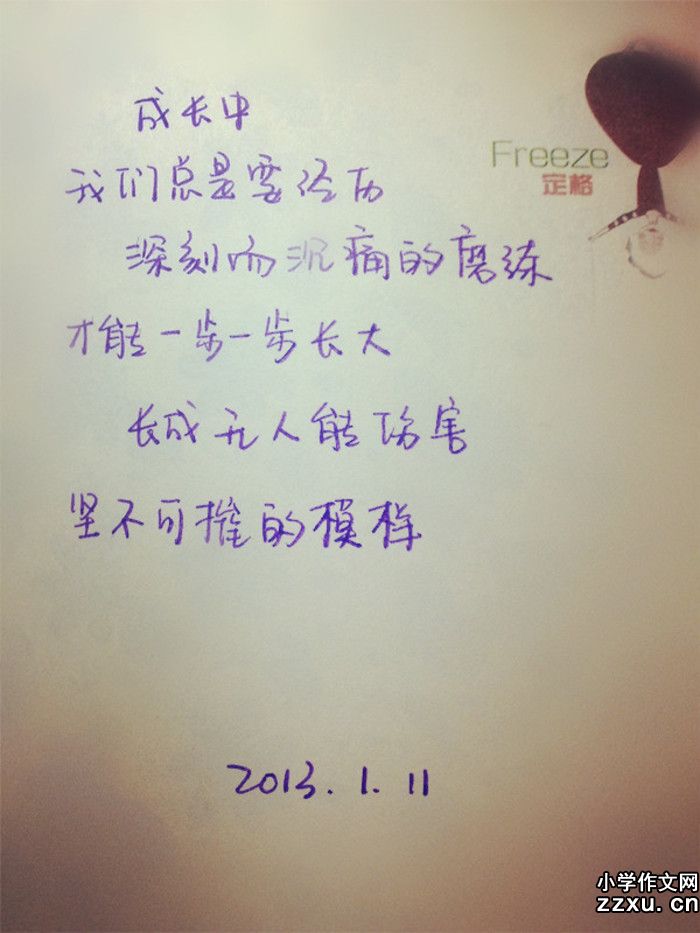 成长中
Freeze
定格
我们总是要经历
深刻而沉痛的磨练
才能一步一步长大
长成无人能伤害
坚不可摧的模样
2013.1.11
小学作文网
zzxu.cn